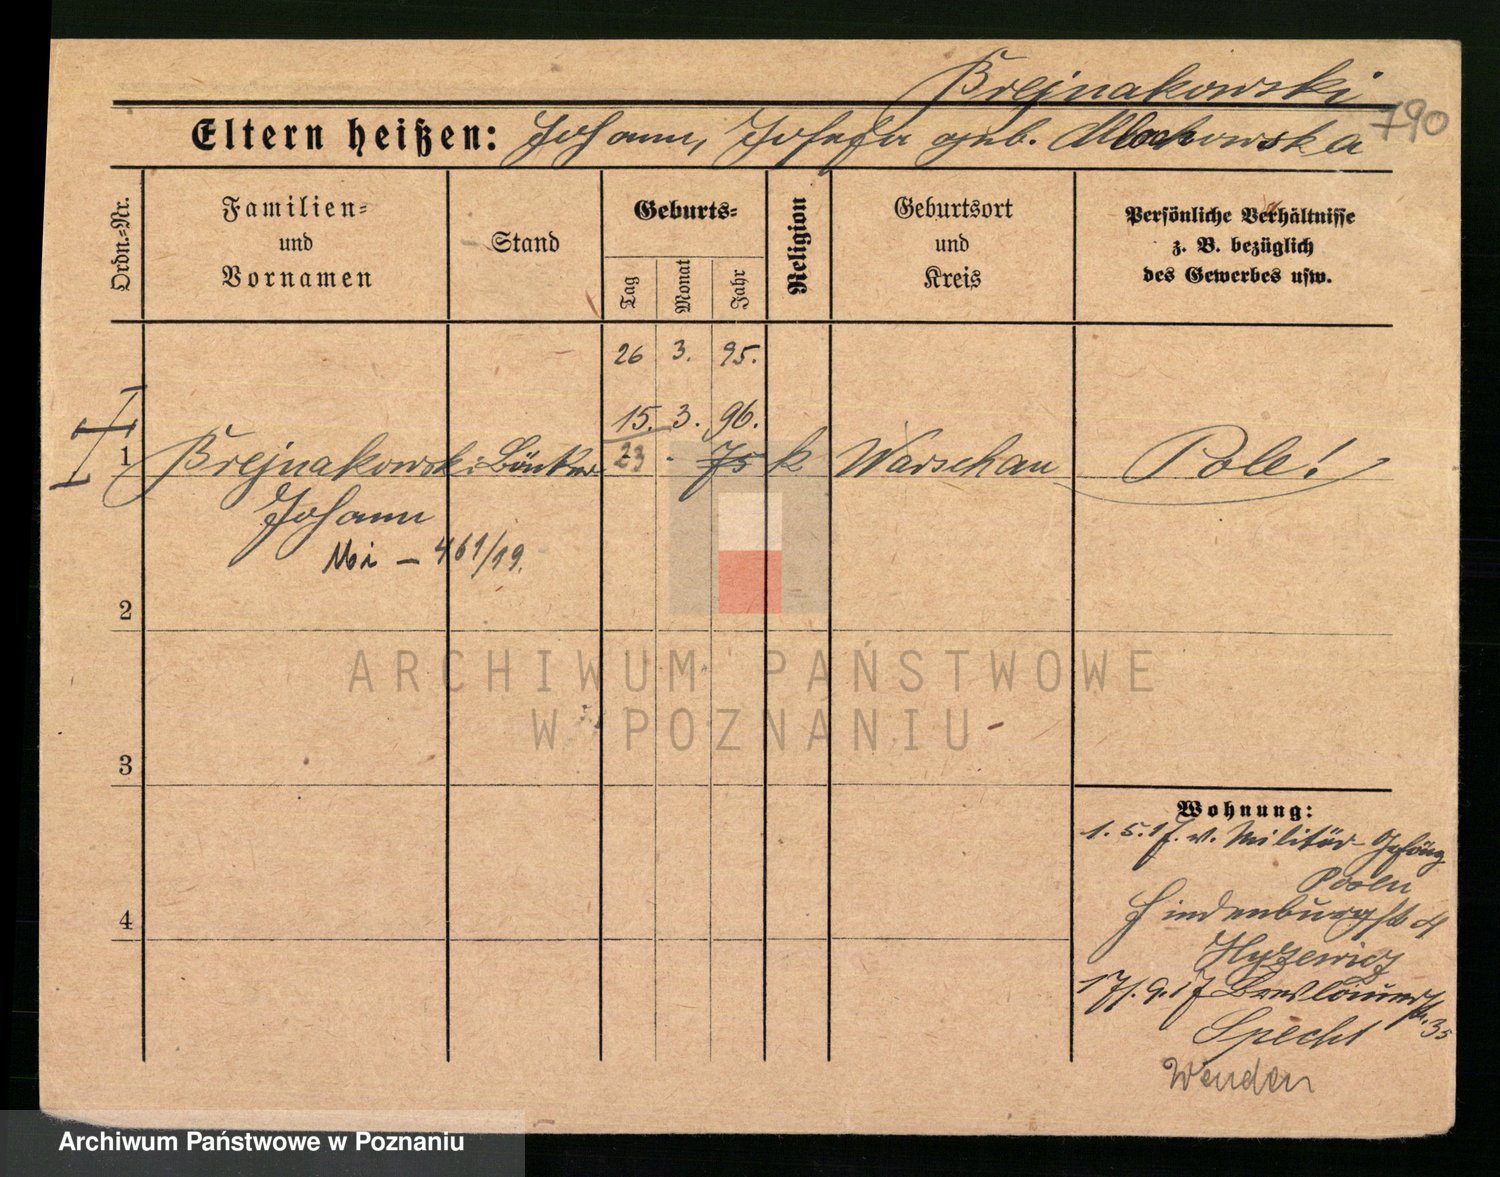 Brejnakowski
790
Eltern heißen: Johann, Josefa geb. Mlochowska
Ordn.-Nr.
Familien-
und
Vornamen
Stand
Geburts-
Tag
Monat
Jahr
Religion
Geburtsort
und
Kreis
Persönliche Verhältnisse
z. B. bezüglich
des Gewerbes usw.
26 3. 95.
15. 3. 96.
1 Brejnakowski 23 - 75 k Warschau Pole!
Johann
Mi - 461/19.
2
3
4
Wohnung:
1. 5. 17. v. Militär-Gefäng
Posen
Hindenburgstr
17. 9. 17 Breslauerstr. 35
Specht
Wenden
ARCHIWUM PAŃSTWOWE
W POZNANIU
Archiwum Państwowe w Poznaniu